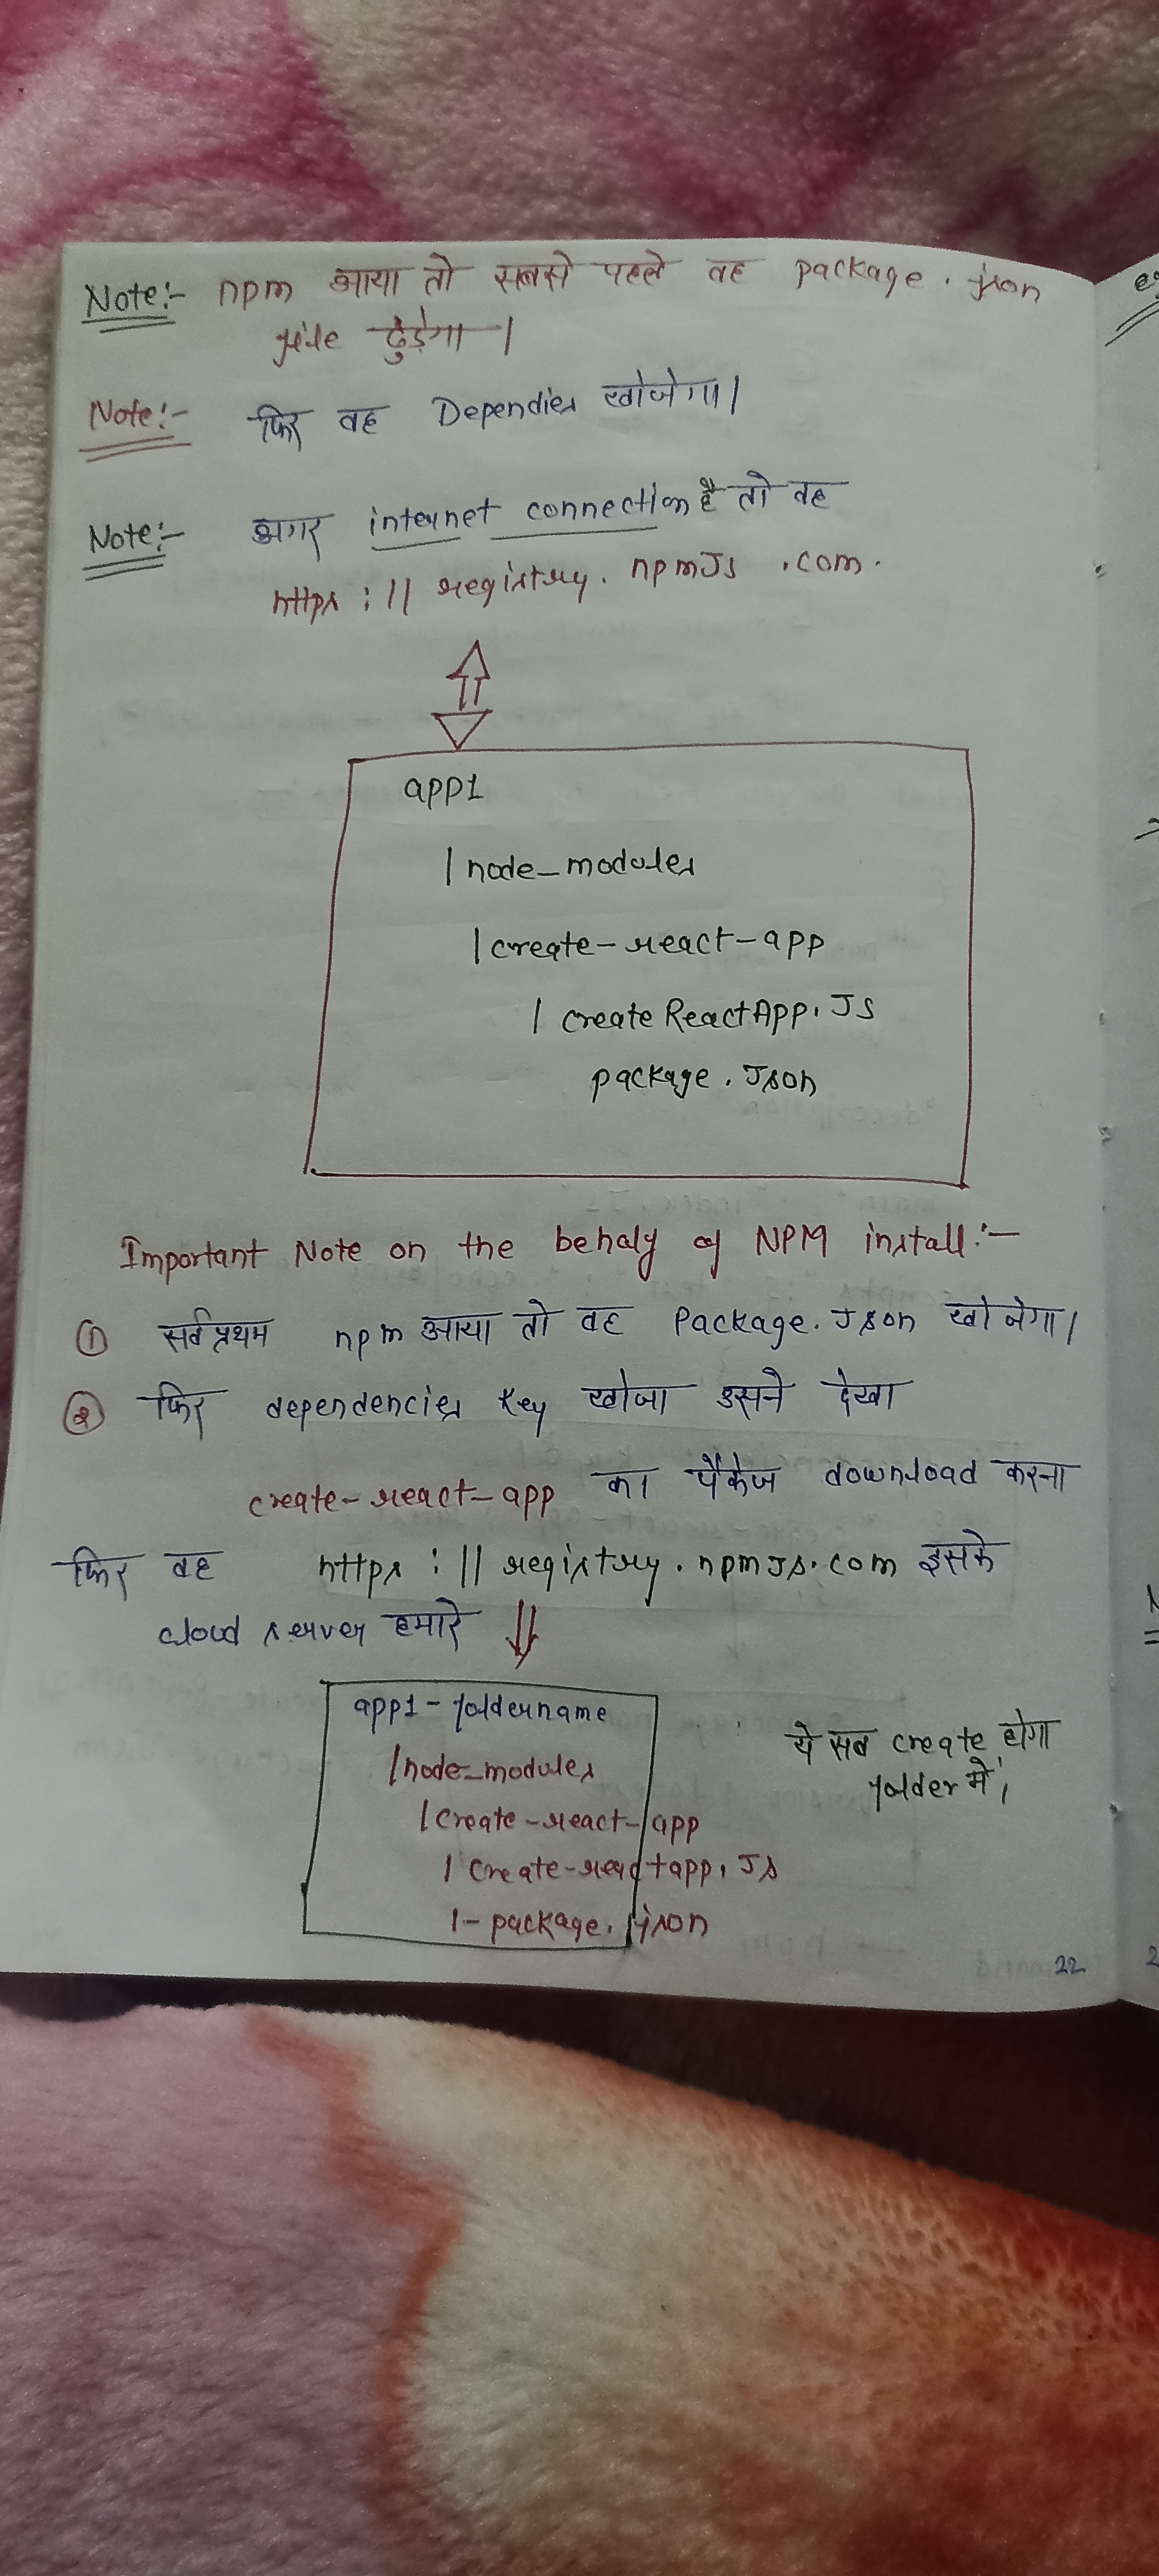 Note:- npm आया तो सबसे पहले वह package.json
file ढुड़ेगा।
Note:- फिर वह Dependies खोजेगा।
Note:- अगर internet connection है तो वह
https://registry.npmJs.com.
app1
|node_modules
|create-react-app
|createReactApp.JS
package.Json
Important Note on the behalf of NPM install:-
① सर्वप्रथम npm आया तो वह Package.Json खोजेगा।
② फिर dependencies key खोजा उसने देखा
create-react-app का पैकेज download करना
फिर वह https://registry.npmJs.com इसके
cloud server हमारे
app1-foldername
|node_modules
|create-react-app
|create-reactapp.Js
|-package.json
ये सब create होगा
folder में।
22